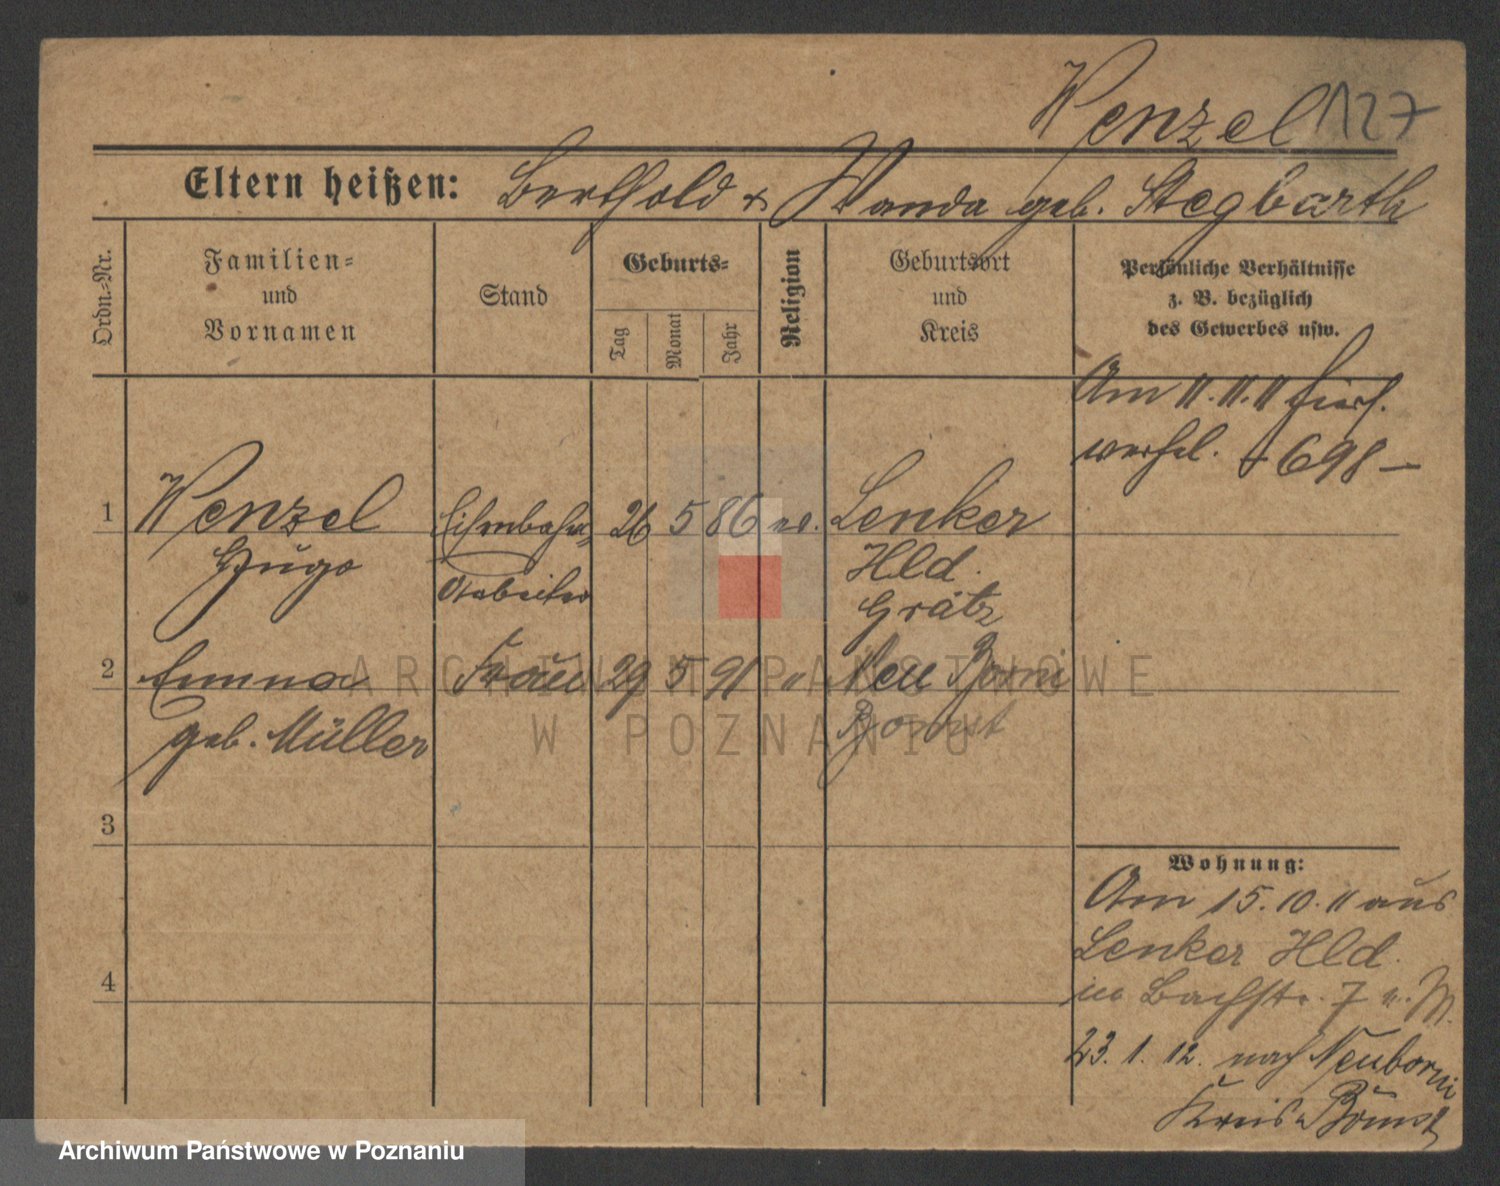 Wenzel 127
Eltern heißen: Berthold & Wanda geb. Stegbarth
Ordn.-Nr.
Familien-
und
Vornamen
Stand
Geburts-
Tag
Monat
Jahr
Religion
Geburtsort
und
Kreis
Persönliche Verhältnisse
z. B. bezüglich
des Gewerbes usw.
Am 11.11.11 hier
698
1 Wenzel Eisenbahn- 26 5 86 ev. Lenker
Hugo Arbeiter Hld.
Grätz
2 Emma Frau 29 5 91 " Neu Borui
geb. Müller Bomst
3
4
Wohnung:
Am 15.10.11 aus
Lenker Hld.
in Bachstr. 7 b. M.
23.1.12. nach Neuborui
Kreis Bomst
ARCHIWUM PAŃSTWOWE
W POZNANIU
Archiwum Państwowe w Poznaniu